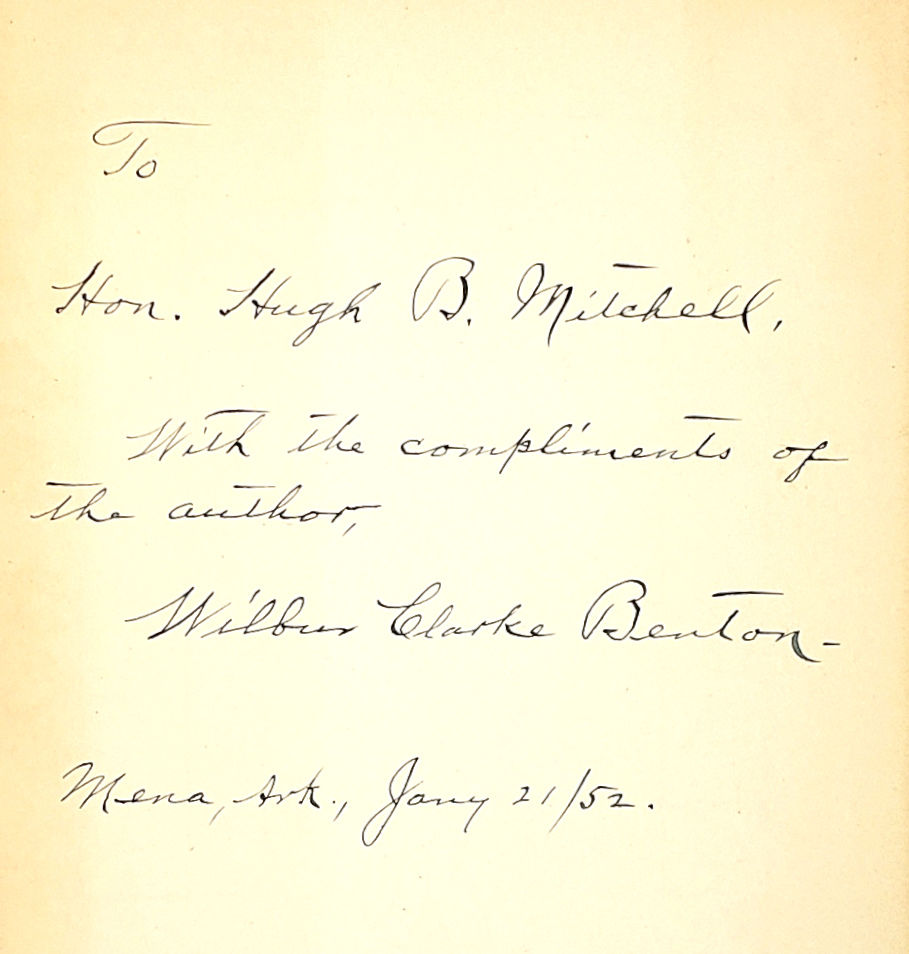 To
Hon. Hugh B. Mitchell,
With the compliments of
the author,
Wilbur Clarke Benton-
Mena, Ark., Jany 21/52.